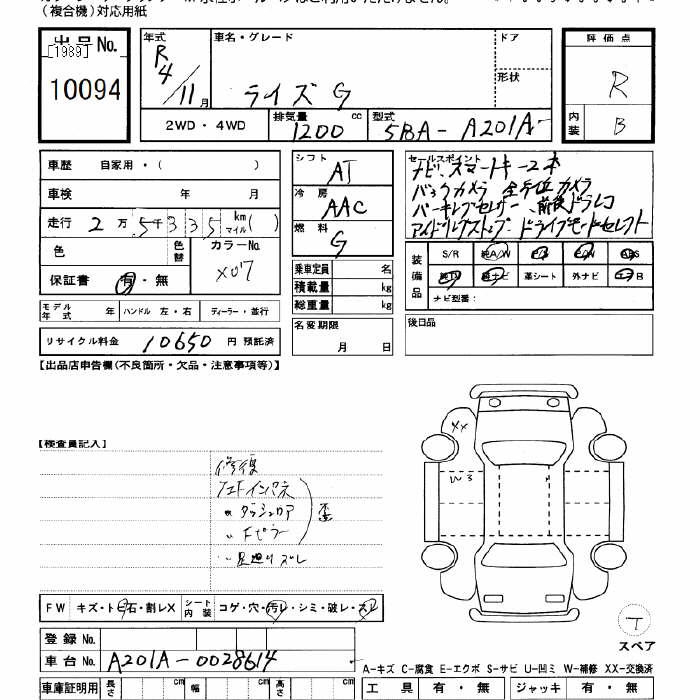 (複合機)対応用紙
出品No. [1989] 10094
年式 R4/11月
車名・グレード ライズ G
ドア
形状
評価点 R
内装 B
2WD・4WD
排気量 1200 cc
型式 5BA-A201A-
車歴 自家用・( )
車検 年 月
走行 2万5千335 km マイル( )
色 色替 カラーNo. X07
保証書 有・無
モデル年式 年 ハンドル 左・右 ディーラー・並行
リサイクル料金 10650 円 預託済
シフト AT
冷房 AAC
燃料 G
乗車定員 名
積載量 kg
総重量 kg
名変期限 月 日
セールスポイント
ナビ、スマートキー2本
バックカメラ 全方位カメラ
前後ドラレコ
アイドリングストップ ドライブモードセレクト
装備品 S/R 純A/W P/S P/W ABS
純TV 純ナビ 革シート 外ナビ エアB
ナビ型番:
後日品
【出品店申告欄(不良箇所・欠品・注意事項等)】
【検査員記入】
修復
インパネ
〃 ダッシュロア
〃 Fピラー
歪
足廻りズレ
XX
W3
FW キズ・トビ石・割レX シート内装 コゲ・穴・汚レ・シミ・破レ・スレ
登録No.
車台No. A201A-0028614
車庫証明用 長さ cm 幅 cm 高さ cm
T
スペア
A-キズ C-腐食 E-エクボ S-サビ U-凹ミ W-補修 XX-交換済
工具 有・無 ジャッキ 有・無